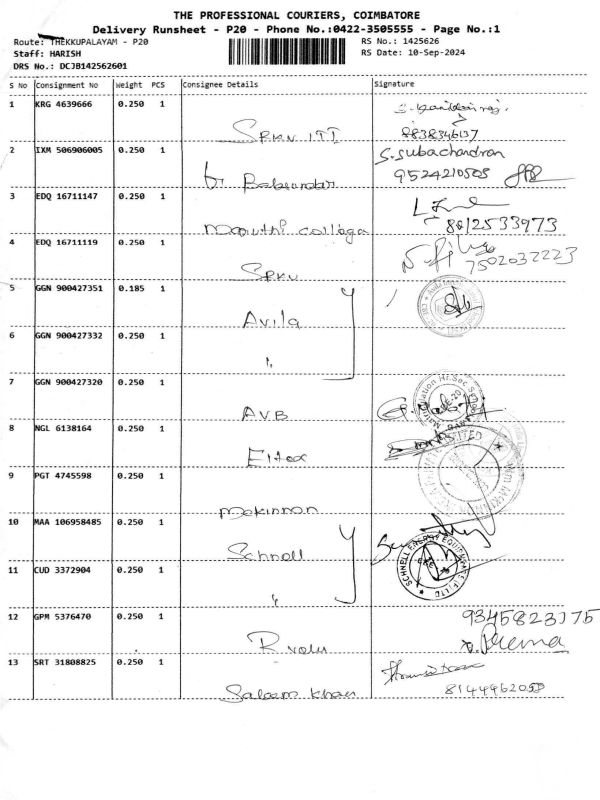 THE PROFESSIONAL COURIERS, COIMBATORE
Delivery Runsheet - P20 - Phone No.:0422-3505555 - Page No.:1
Route: THEKKUPALAYAM - P20 RS No.: 1425626
Staff: HARISH RS Date: 10-Sep-2024
DRS No.: DCJB142562601
S No Consignment No Weight PCS Consignee Details Signature
1 KRG 4639666 0.250 1
SRKV ITI 8838346137
2 IXM 506906005 0.250 1 S.Subachandran
9524210505
3 EDQ 16711147 0.250 1
Maruthi college 8012533973
4 EDQ 16711119 0.250 1
SRKV 7502037223
5 GGN 900427351 0.185 1
Avila
6 GGN 900427332 0.250 1
"
7 GGN 900427320 0.250 1
AVB
8 NGL 6138164 0.250 1
Eltex
9 PGT 4745598 0.250 1
Mckinnon
10 MAA 106958485 0.250 1
Schnell
SCHNELL ENERGY EQUIPMENTS P LTD
11 CUD 3372904 0.250 1
"
12 GPM 5376470 0.250 1 9345823175
R velu Prema
13 SRT 31808825 0.250 1
Saleem khan 8144962050